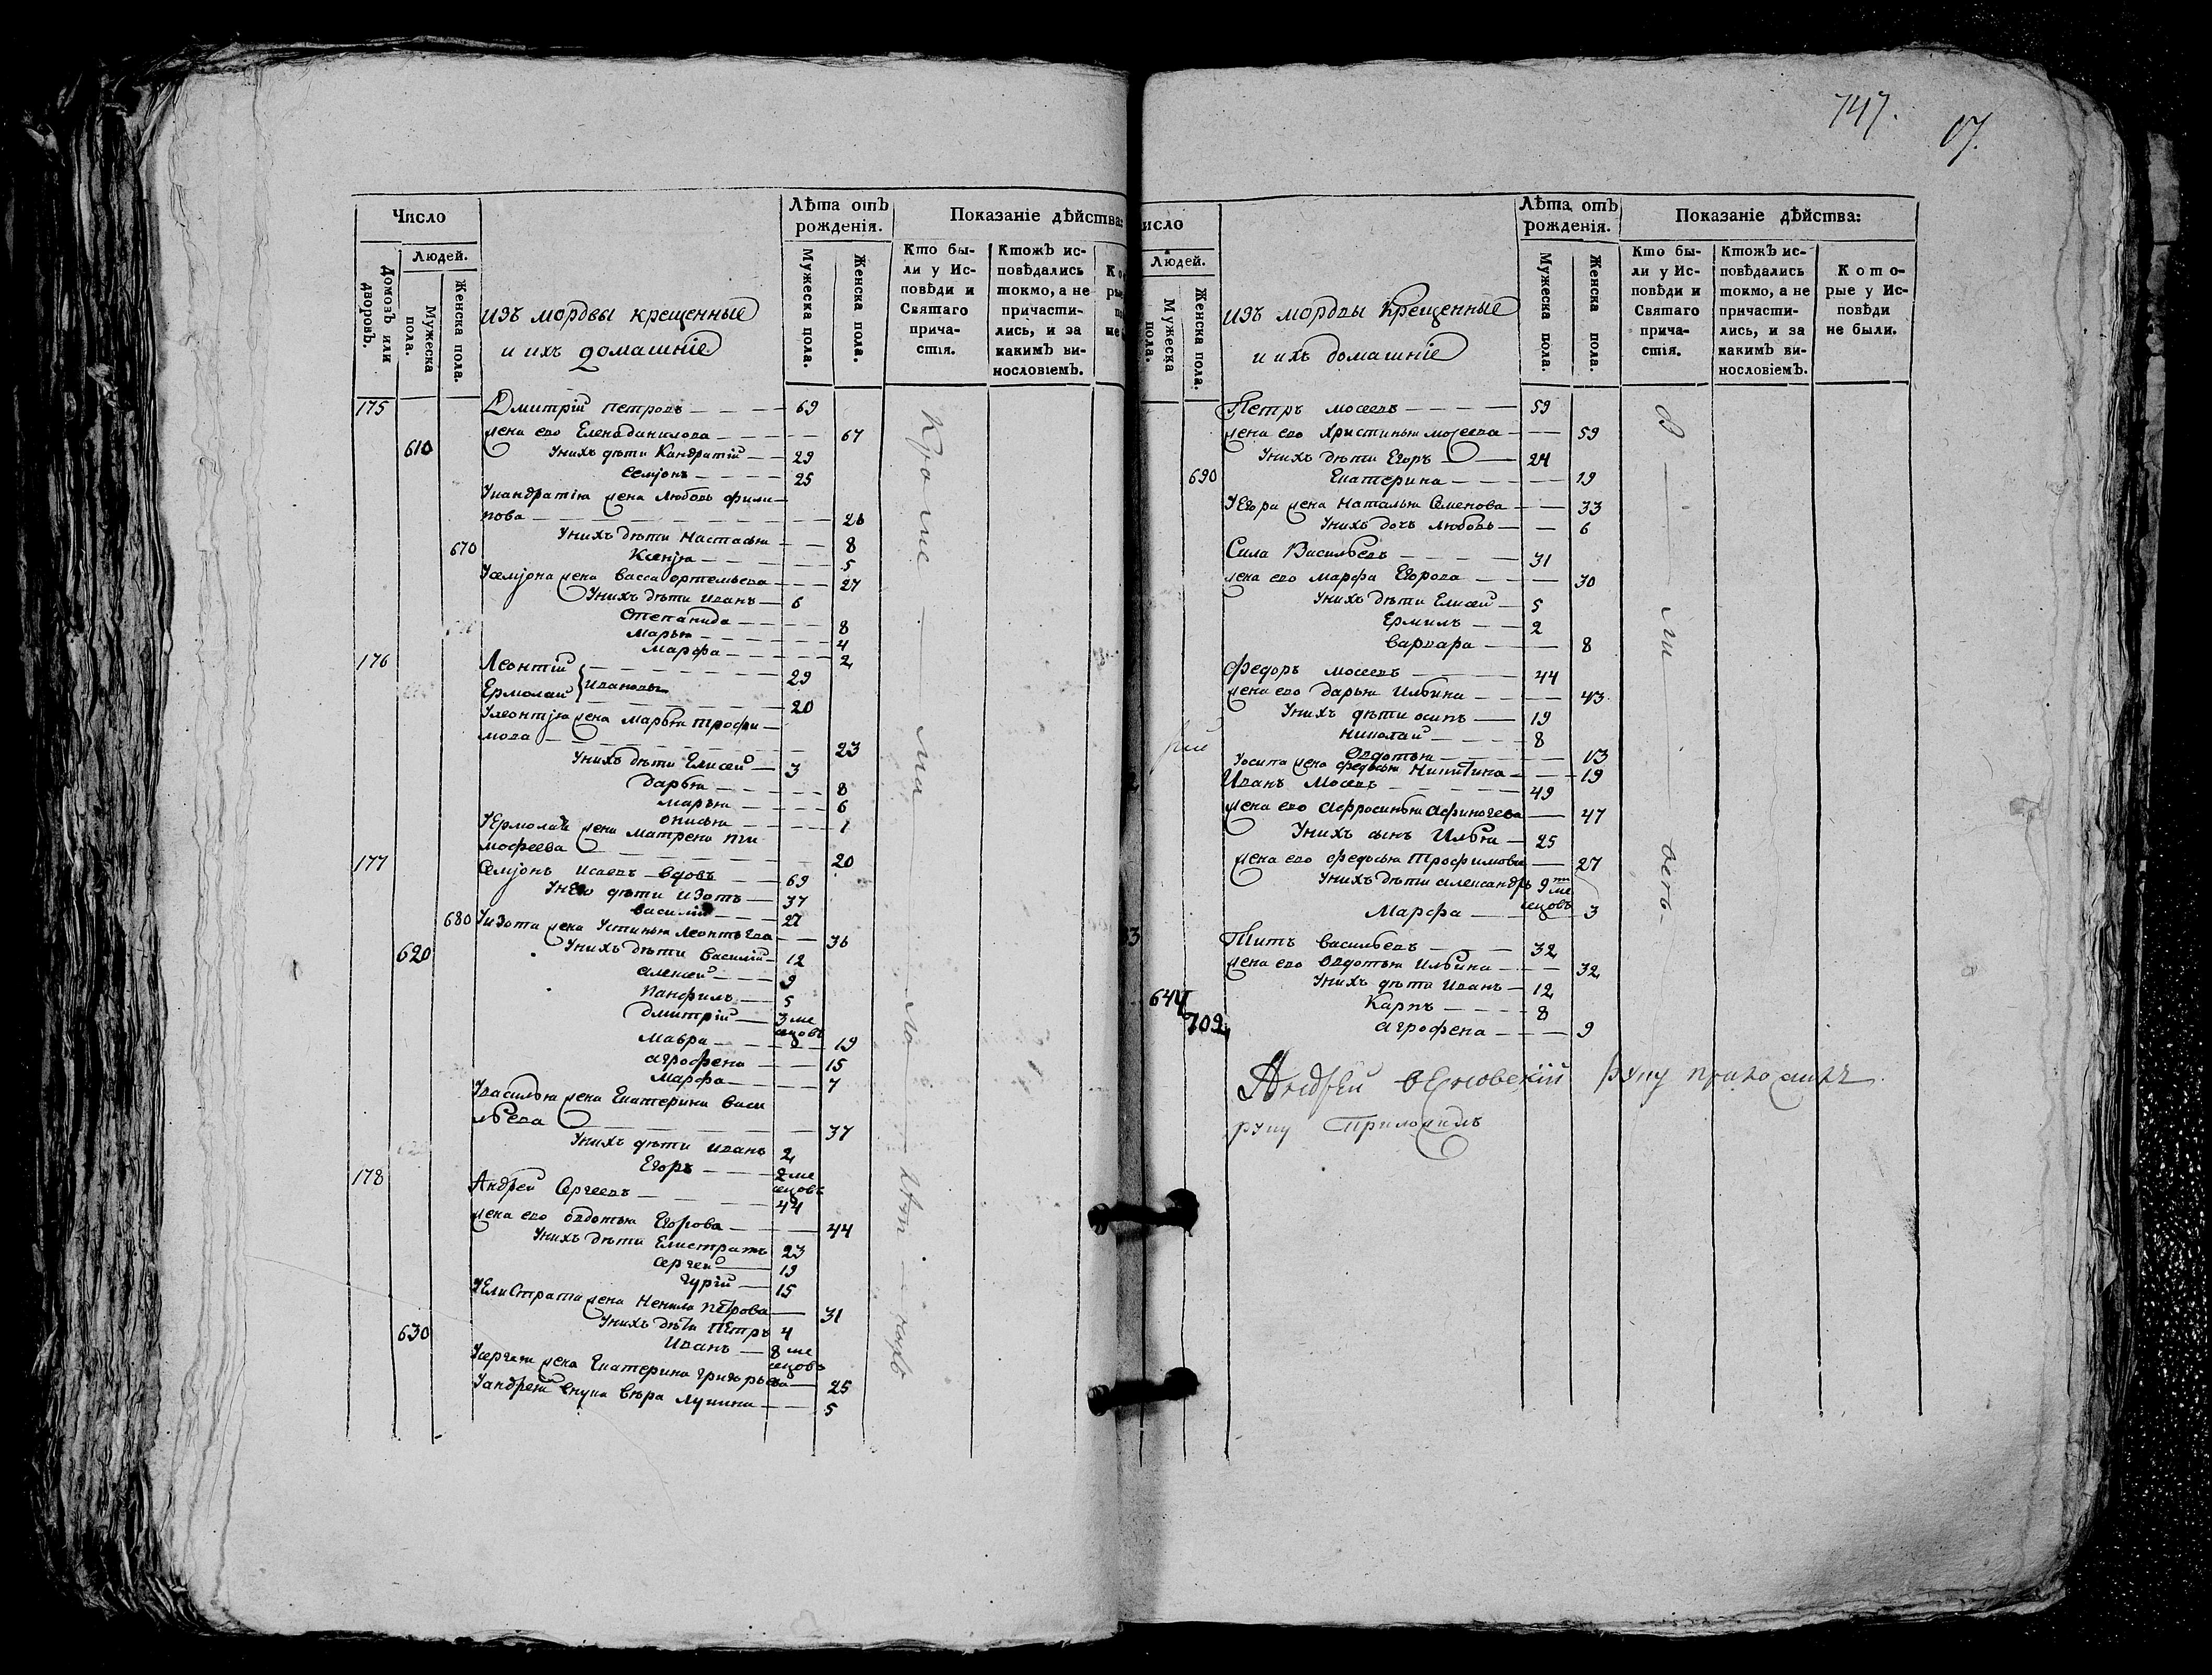 747.
Число
Людей.
Домовъ или дворовъ.
Мужеска пола.
Женска пола.
изъ мордвы крещенные
и ихъ домашніе
Лѣта отъ рожденія.
Мужеска пола.
Женска пола.
Показаніе дѣйства:
Кто были у Исповѣди и Святаго причастія.
Ктожъ исповѣдались токмо, а не причастились, и за какимъ винословіемъ.
175 Дмитрій петровъ 69
жена ево Елена данилова 67
610 Унихъ дѣти Кандратій 29
Семіонъ 25
Укандратія жена Любовь фили
пова 26
Унихъ дѣти Настасья 8
670 Ксенія 5
Усемјона жена васса ортемьева 27
Унихъ дѣти Иванъ 6
Степанида 8
Марья 4
Марфа 2
176 Леонтій 29
Ермолай } Ивановы 20
Улеонтія жена Марья трофи
мова 23
Унихъ дѣти Елисей 3
дарья 8
марья 6
онисья 1
УЕрмолая жена Матрена ти
мофеева 20
177 Семјонъ Исаевъ вдовъ 69
Унево дѣти Изотъ 37
василій 27
680 Уизота жена Устинья Леонтьева 36
620 Унихъ дѣти Василій 12
алексей 9
Панфилъ 5
дмитрій 3 ме
сецовъ
Мавра 19
агрофена 15
Марфа 7
Увасилья жена Екатерина Васи
льева 37
Унихъ дѣти иванъ 2
Егоръ 2 ме
сецовъ
178 Андрей Сергеевъ 44
жена ево овдотья Егорова 44
Унихъ дѣти Елистратъ 23
сергей 19
гурій 15
УЕлистрата жена Ненила петрова 31
630 Унихъ дѣти Петръ 4
Иванъ 8 ме
сецовъ
Усергея жена Екатерина григорьева 25
Уандрея внука вѣра Лукина 5
исло
Людей.
Мужеска пола.
Женска пола.
изъ мордвы крещенные
и ихъ домашніе
Лѣта отъ рожденія.
Мужеска пола.
Женска пола.
Показаніе дѣйства:
Кто были у Исповѣди и Святаго причастія.
Ктожъ исповѣдались токмо, а не причастились, и за какимъ винословіемъ.
Которые у Исповѣди не были.
Петръ мосеевъ 59
жена ево Христинья мосеева 59
Унихъ дѣти Егоръ 24
690 Екатерина 19
УЕгора жена Наталья Семенова 33
Унихъ дочь любовь 6
Сила Васильевъ 31
жена ево марфа Егорова 30
Унихъ дѣти Елисей 5
Ермилъ 2
варвара 8
федоръ мосеевъ 44
жена ево дарья Ильина 43
Унихъ дѣти осипъ 19
николай 8
Овдотья 13
Уосипа жена федосья Никитина 19
Иванъ Мосеевъ 49
жена ево афросинья афиногева 47
Унихъ сынъ Илья 25
жена ево федосья трофимова 27
Унихъ дѣти александръ 9ти ме
сецовъ
Марфа 3
Титъ васильевъ 32
жена ево овдотья Ильина 32
Унихъ дѣти Иванъ 12
644 Карпъ 8
702 агрофена 9
Андрей
руку приложилъ